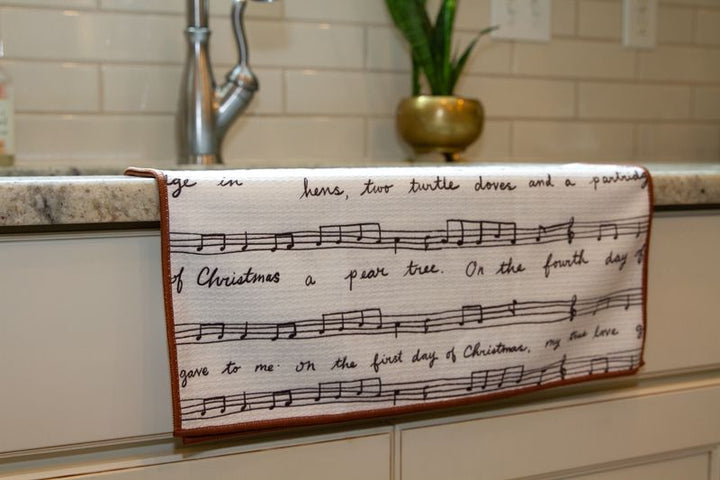 ge in hens, two turtle doves and a partridg
of Christmas a pear tree. On the fourth day of
gave to me. on the first day of Christmas, my true love g